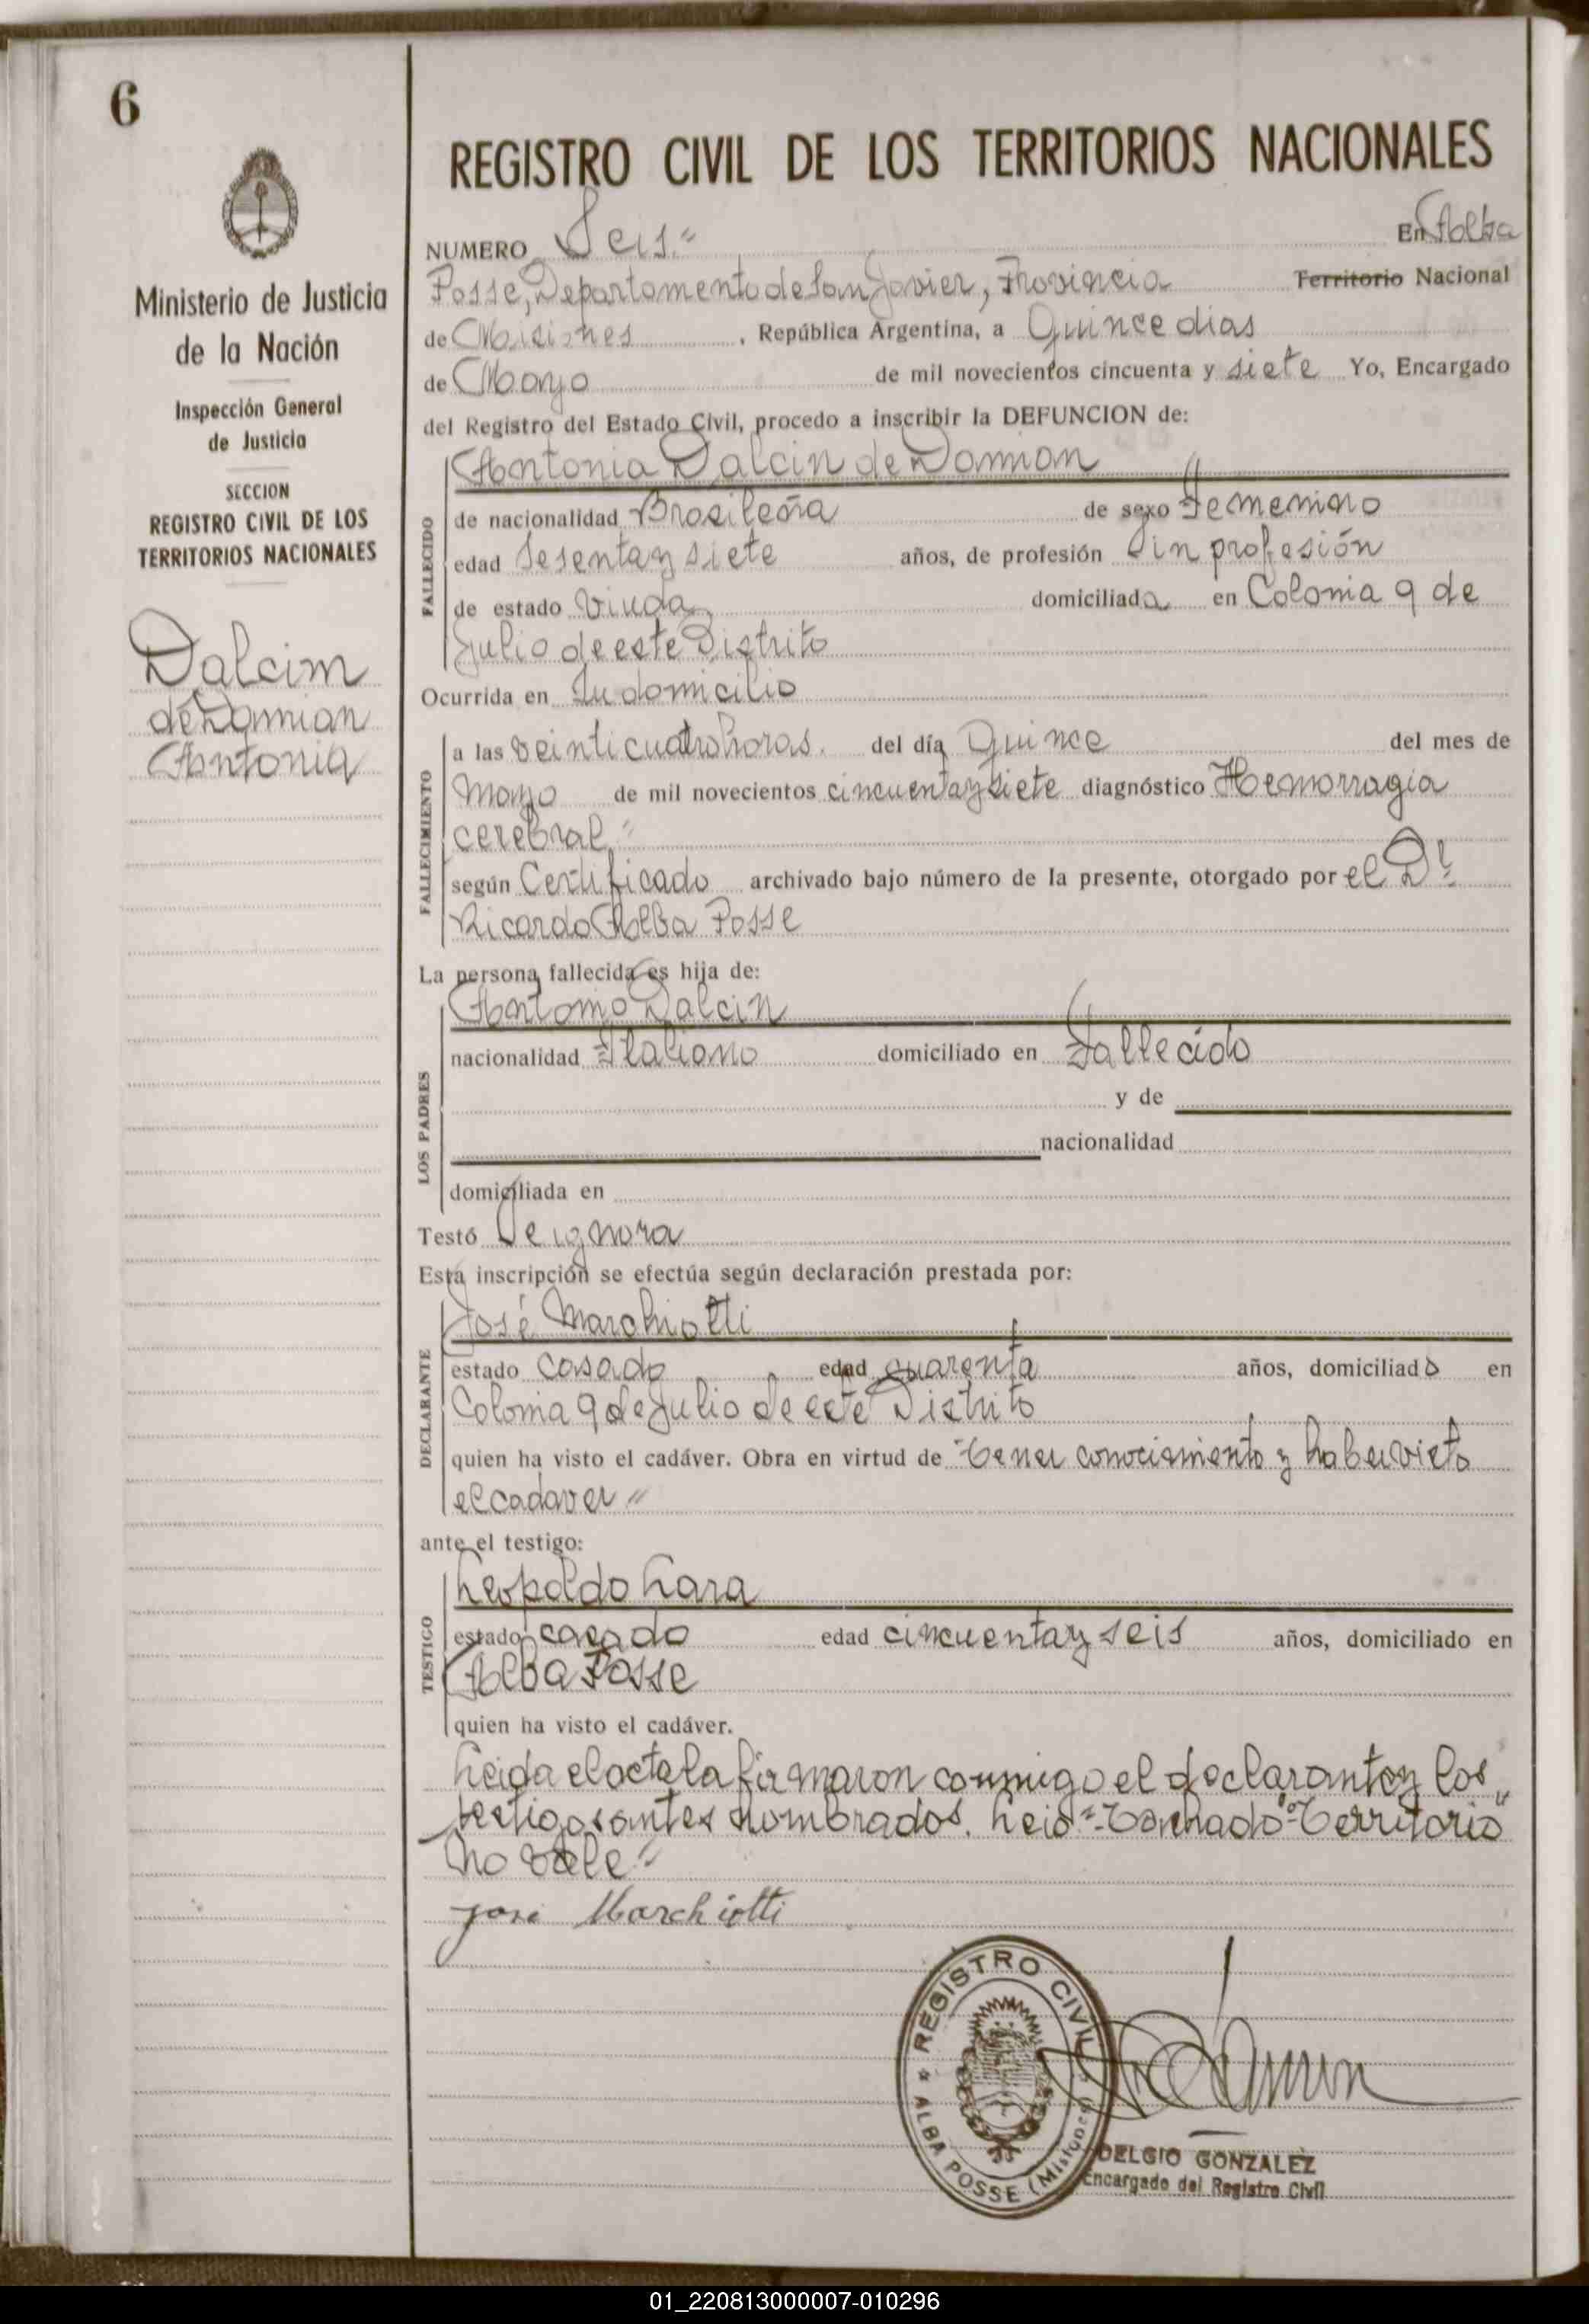 6
Ministerio de Justicia
de la Nación
Inspección General
de Justicia
SECCION
REGISTRO CIVIL DE LOS
TERRITORIOS NACIONALES
Dalcim
de Damian
Antonia
REGISTRO CIVIL DE LOS TERRITORIOS NACIONALES
NUMERO Seis.= En Alba
Posse, Departamento de San Javier, Provincia Territorio Nacional
de Misiones , República Argentina, a Quince dias
de Mayo de mil novecientos cincuenta y siete Yo, Encargado
del Registro del Estado Civil, procedo a inscribir la DEFUNCION de:
Antonia Dalcin de Damian
FALLECIDO
de nacionalidad Brasileña de sexo Femenino
edad Sesenta y siete años, de profesión Sin profesión
de estado Viuda domiciliada en Colonia 9 de
Julio de este Distrito
Ocurrida en Su domicilio
FALLECIMIENTO
a las veinticuatro horas. del día Quince del mes de
mayo de mil novecientos cincuenta y siete diagnóstico Hemorragia
cerebral.=
según Certificado archivado bajo número de la presente, otorgado por el Dr.
Ricardo Alba Posse
La persona fallecida es hija de:
LOS PADRES
Antonio Dalcin
nacionalidad Italiano domiciliado en Fallecido
y de
nacionalidad
domiciliada en
Testó Se ignora
Esta inscripción se efectúa según declaración prestada por:
DECLARANTE
José Marchiotti
estado casado edad cuarenta años, domiciliado en
Colonia 9 de Julio de este Distrito
quien ha visto el cadáver. Obra en virtud de tener conocimiento y haber visto
el cadaver =
ante el testigo:
TESTIGO
Leopoldo Lara
estado casado edad cincuenta y seis años, domiciliado en
Alba Posse
quien ha visto el cadáver.
Leida el acta la firmaron conmigo el declarante y los
testigos antes nombrados. "Tachado" Territorio
no vale =
José Marchiotti
REGISTRO CIVIL
ALBA POSSE (Misiones)
DELGIO GONZALEZ
Encargado del Registro Civil
01_220813000007-010296